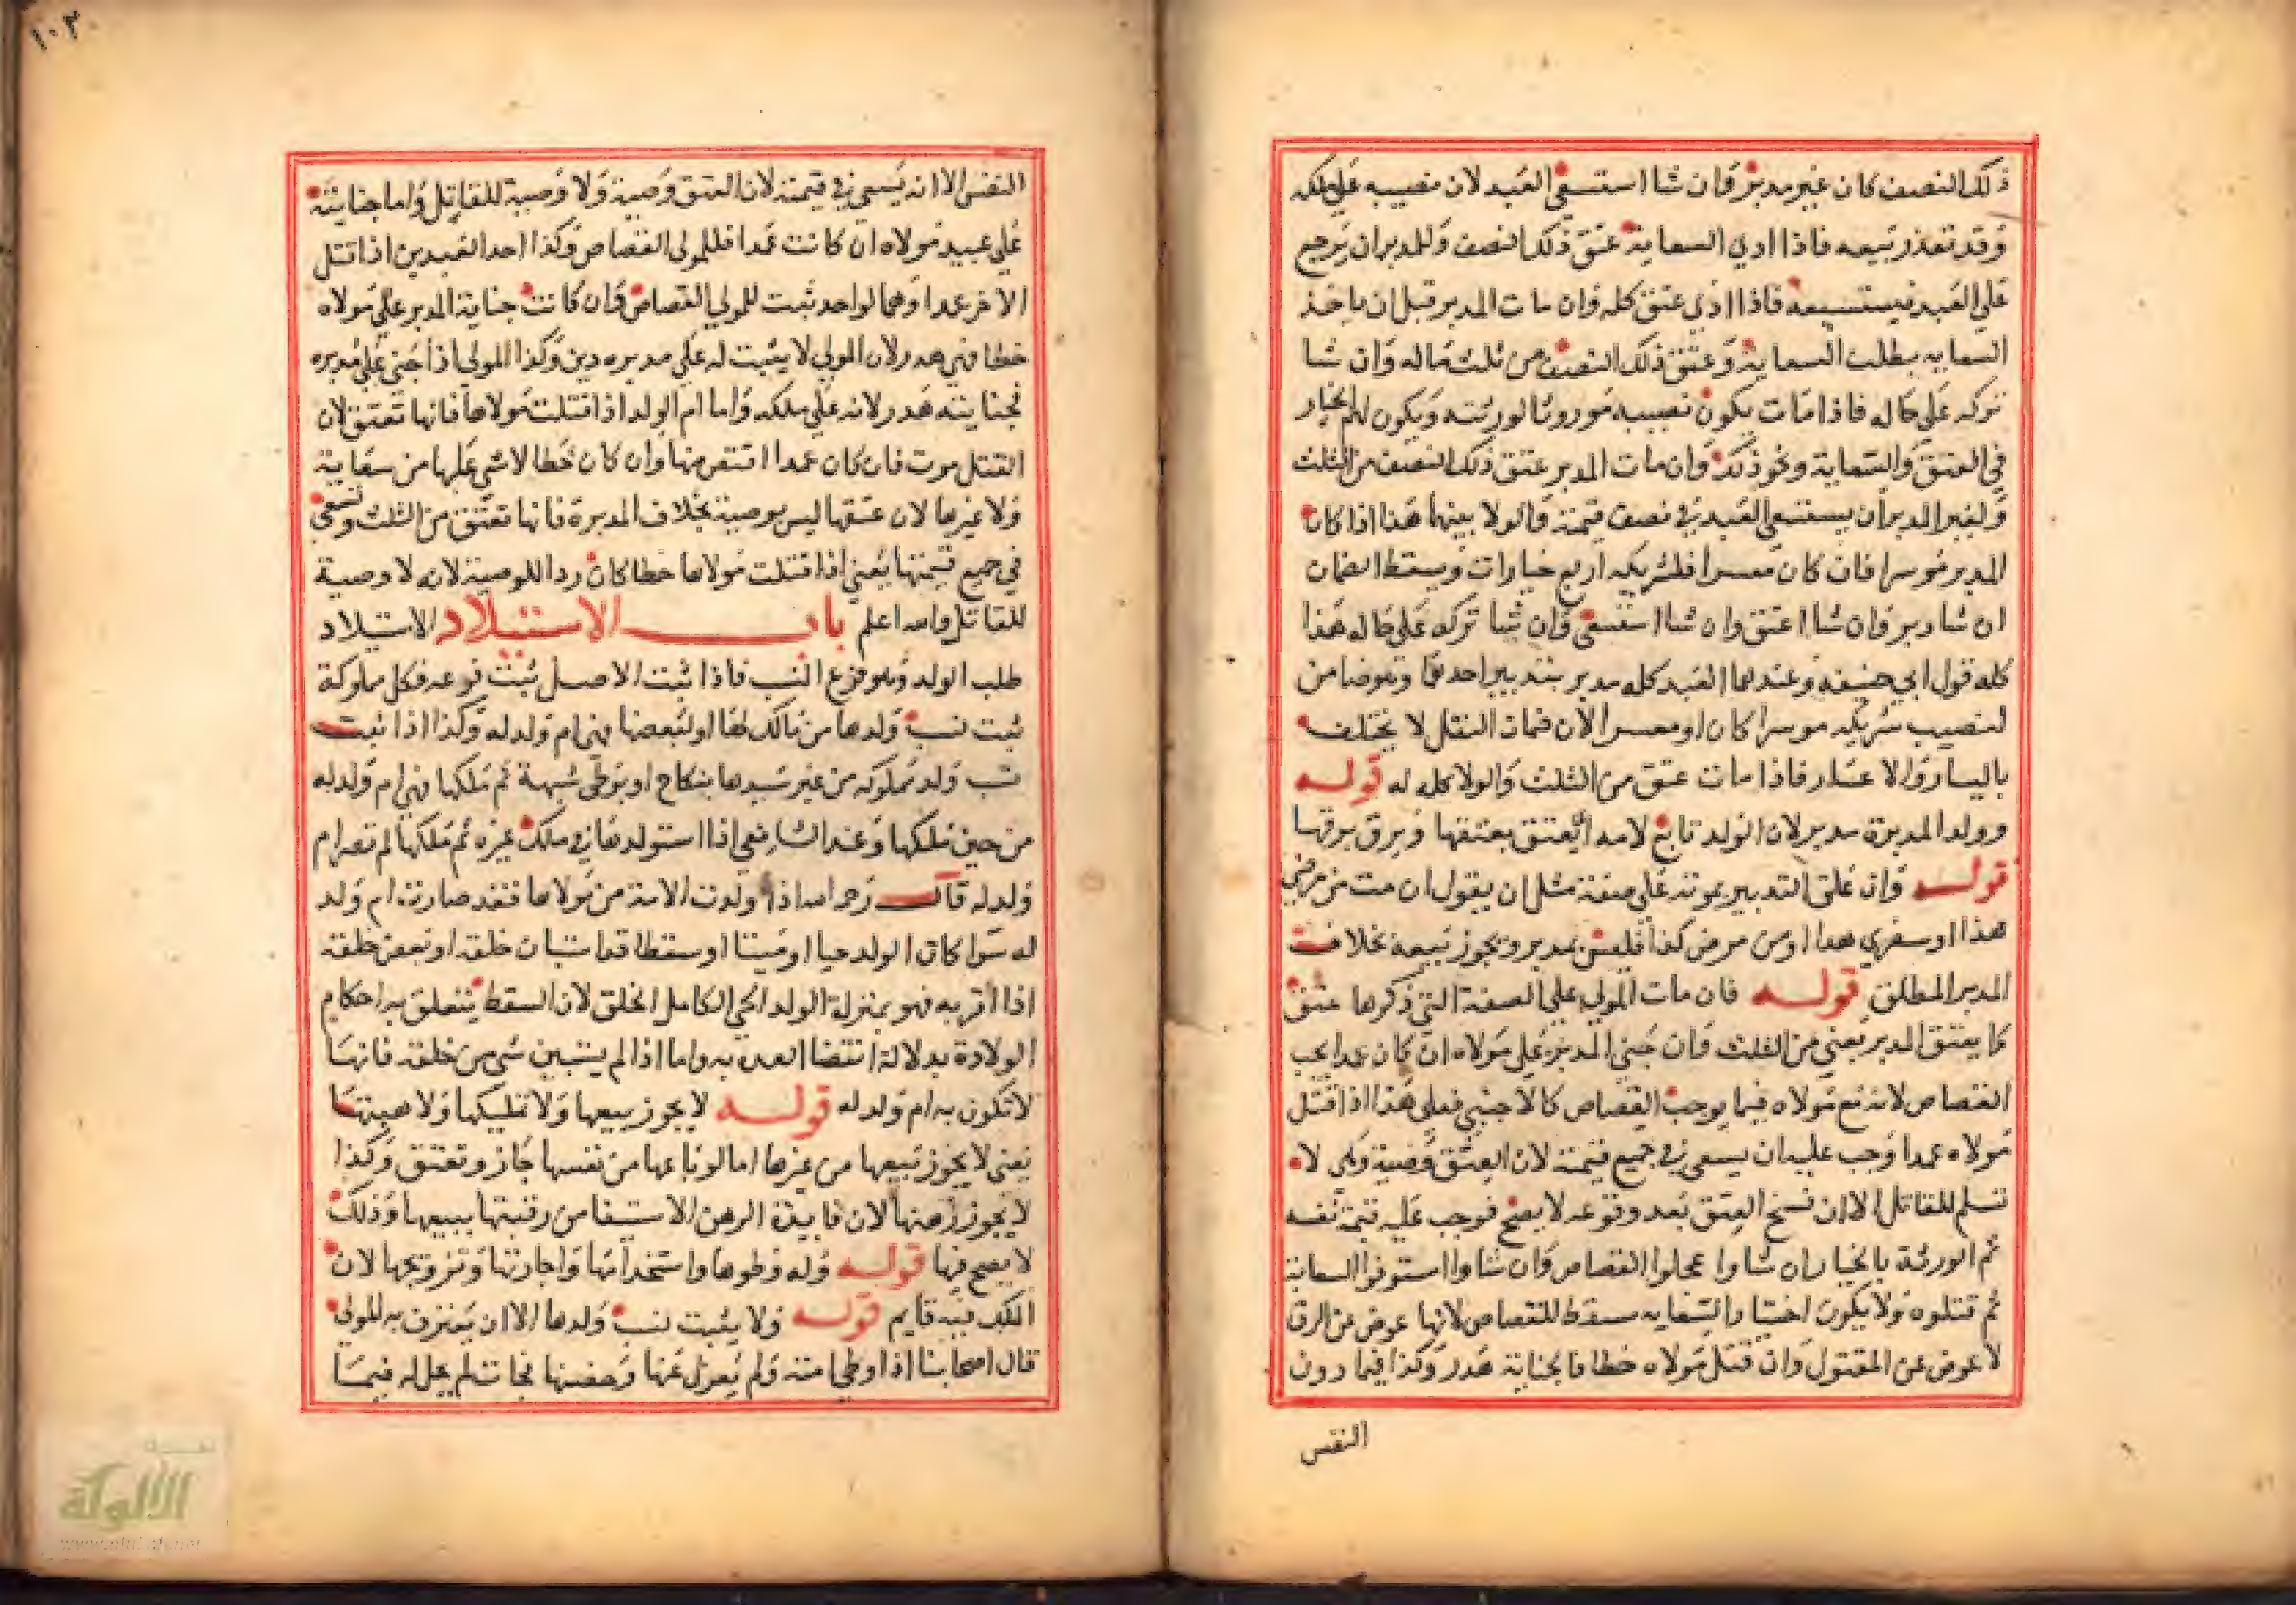 ذلك النصف كان غير مدبر وان شا استسعى العبد لان نصيبه على ملكه
وقد تعذر بيعه فاذا ادي السعاية عتق ذلك النصف وللمدبر ان يرجع
علي العبد فيستسعيه فاذا ادي عتق كله وان مات المدبر قبل ان ياخذ
السعايه بطلت السعاية وعتق ذلك النصف من ثلث ماله وان شا
تركه علي حاله فاذا مات يكون نصيبه موروثا لورثته ويكون لهم الخيار
في العتق والسعاية ونحو ذلك وان مات المدبر عتق ذلك النصف من الثلث
ولغير المدبر ان يستسعي العبد في نصف قيمته والولا بينهما هذا اذا كان
المدبر موسرا فان كان معسرا فلشريكه اربع خيارات ويسقط الضمان
ان شا دبر وان شا اعتق وان شا استسعى وان شا تركه علي حاله هذا
كله قول ابي حنيفه وعندهما العبد كله مدبر بتدبير احدهما وهو ضامن
لنصيب شريكه موسرا كان او معسرا لان ضمان النقل لا يختلف
باليسار والاعسار فاذا مات عتق من الثلث والولا كله له قوله
وولد المدبرة مدبر لان الولد تابع لامه ايعتق بعتقها ويرق برقها
قوله وان علق التدبير بموته علي صفة مثل ان يقول ان مت من مرضي
هذا او سفري هذا او من مرض كذا فليس بمدبر ويجوز بيعه بخلاف
المدبر المطلق قوله فان مات المولي علي الصفة التي ذكرها عتق
كما يعتق المدبر يعني من الثلث وان جني المدبر علي مولاه ان كان عمدا يجب
القصاص لانه مع مولاه فيما يوجب القصاص كالاجنبي فعلي هذا اذا قتل
مولاه عمدا وجب عليه ان يسعى في جميع قيمته لان العتق وصية وهي لا
تسلم للقاتل الا ان فسخ العتق بعد وقوعه لا يصح فوجب عليه قيمة نفسه
ثم الورثة بالخيار ان شاوا عجلوا القصاص وان شاوا استوفوا السعاية
ثم قتلوه ولا يكون اختيار السعايه سقط للقصاص لانها عوض عن الرق
لا عوض عن المقتول وان قتل مولاه خطا فالجناية هدر وكذا فيما دون
النفس
١٠٣
النفس الا انه يسعى في قيمته لان العتق وصية ولا وصية للقاتل واما جنايته
علي عبيد مولاه ان كانت عمدا فللمولي القصاص وكذا احد العبدين اذا قتل
الاخر عمدا وهما لواحد ثبت للمولي القصاص وان كانت جناية المدبر علي مولاه
خطا فهي هدر لان المولي لا يثبت له علي مدبره دين وكذا المولي اذا جني علي مدبره
فجنايته هدر لانه علي ملكه واما ام الولد اذا قتلت مولاها فانها تعتق لان
القتل موت فان كان عمدا اقتص منها وان كان خطا لاشي عليها من سعاية
ولا غيرها لان عتقها ليس بوصية بخلاف المدبرة فانها تعتق من الثلث وتسعى
في جميع قيمتها يعني اذا قتلت مولاها خطا كان ردا للوصية لانه لا وصية
للقاتل والله اعلم باب الاستيلاد الاستيلاد
طلب الولد وهو فرع النسب فاذا ثبت الاصل ثبت فرعه فكل مملوكة
ثبت نسب ولدها من مالك لها او لبعضها فهي ام ولد له وكذا اذا ثبت
نسب ولد مملوكه من غير سيدها بنكاح او بوطي شبهة ثم ملكها فهي ام ولد له
من حين ملكها وعند الشافعي اذا استولدها في ملك غيره ثم ملكها لم تصر ام
ولد له قال رحمه الله اذا ولدت الامة من مولاها فقد صارت ام ولد
له سوا كان الولد حيا او ميتا او سقطا قد استبان خلقه او بعض خلقه
اذا اقر به فهو بمنزلة الولد الحي الكامل الخلق لان السقط يتعلق به احكام
الولادة بدلالة انقضا العدة به واما اذا لم يستبين شي من خلقه فانها
لا تكون به ام ولد له قوله لا يجوز بيعها ولا تمليكها ولا هبتها
يعني لا يجوز بيعها من غيرها اما لو باعها من نفسها جاز وتعتق وكذا
لا يجوز رهنها لان فايدة الرهن الاستيفا من رقبتها ببيعها وذلك
لا يصح فيها قوله وله وطوها واستخدامها واجارتها وتزويجها لان
الملك فيها قايم قوله ولا يثبت نسب ولدها الا ان يعترف به المولي
قال اصحابنا اذا وطي امته ولم يعزل عنها وحصنها فجات بولد لم يحل له فيما